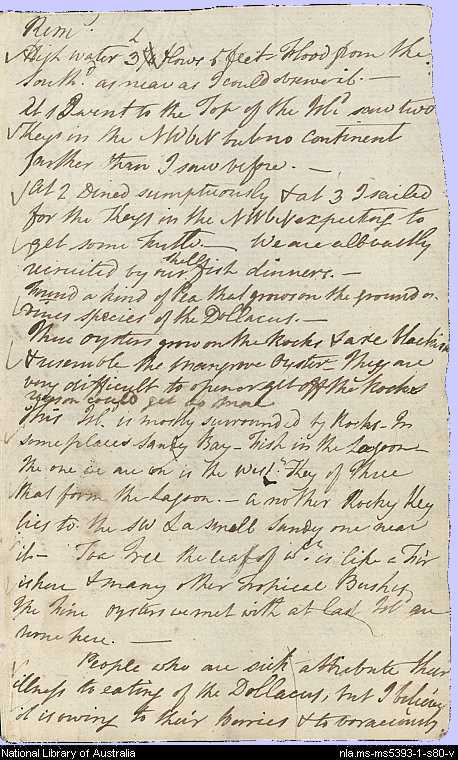 Rem.
High water 3 ½ flows 5 feet - flood from the
South as near as I could observe it. -
At 1 I went to the Top of the Isl.d saw two
Keys in the NWbN but no continent
farther than I saw before. -
At 2 Dined sumptuously & at 3 I sailed
for the Keys in the NWbN expecting to
get some Turtle. - We are all vastly
recruited by our shell fish dinners. -
Found a kind of Pea that grows on the ground or
vines species of the Dollacus. -
These oysters grow on the Rocks & are blackish
& resemble the mangrove Oyster - They are
very difficult to open or get off the Rocks
or you could get no more
This Isl. is mostly surrounded by Rocks - In
some places Sandy Bay - Fish in the Lagoon -
The one we are on is the West.n Key of three
that form the Lagoon. - Another Rocky Key
lies to the SW & a small sandy one near
it - Toa Tree the leaf of w.ch is like a Fir
is here & many other Tropical Bushes
The fine oysters we met with at last Isl.d are
none here. -
People who are sick attribute their
illness to eating of the Dollacus, but I believe
it is owing to their Berries & to voraciously
National Library of Australia
nla.ms-ms5393-1-s80-v